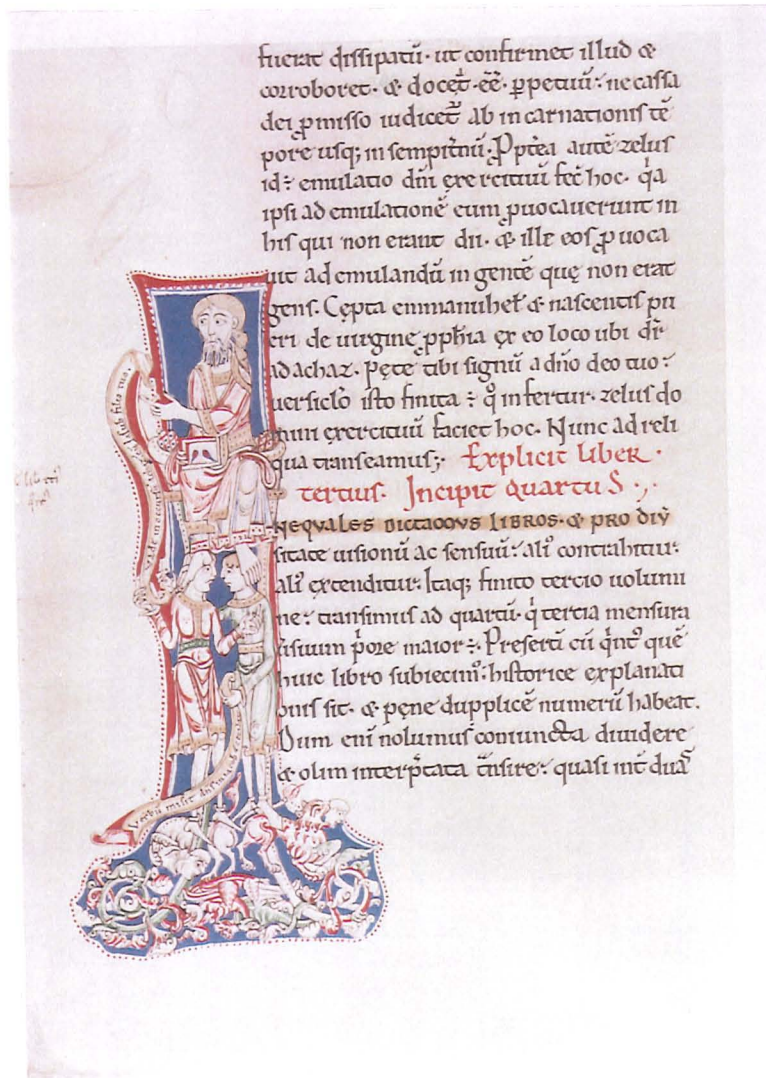 fuerat dissipatū· ut confirmet illud &
corroboret· & docet̄ ·eē· ꝑpetuū: ne cassa
dei ꝓmisso iudicet̄ ab incarnationis tē
pore usq; in sempit̄nū· Ppt̄ea autē zelus
id÷ emulatio dn̄i exercituū fec̄ hoc· qͣa
ipsi ad emulationē eum ꝓuocauerunt in
his qui non erant dii· & ille eos ꝓuoca
uit ad emulandū in gentē quę non erat
gens. Cępta emmanuhel̄ & nascentis pu
eri de uirgine ꝓph̄ia ex eo loco ubi dr̄
ad achaz· Pęte tibi signū a dn̄o deo tuo:
uersiclo isto finita ÷ qͦ infertur· zelus do
mini exercituū faciet hoc· Nunc ad reli
qua transeamus; Explicit liber·
tertius. Incipit quartuS·
NEQUALES DICTAMUS LIBROS· & PRO DIV̄
sitate uisionū ac sensuū: aliꝰ contrahitur·
aliꝰ extenditur. Itaq; finito tercio uolumi
ne: transimus ad quartū· qͥ tercia mensura
uisuum pͥore maior ÷. Presertī cū qͥntꝰ quē
huic libro subiecimꝰ: historice explanati
onis sit· & pęne dupplicē numerū habeat.
Dum eni nolumus coniuncta diuidere
& olim interp̄tata t̄nsire: quasi int̄ duas
uade